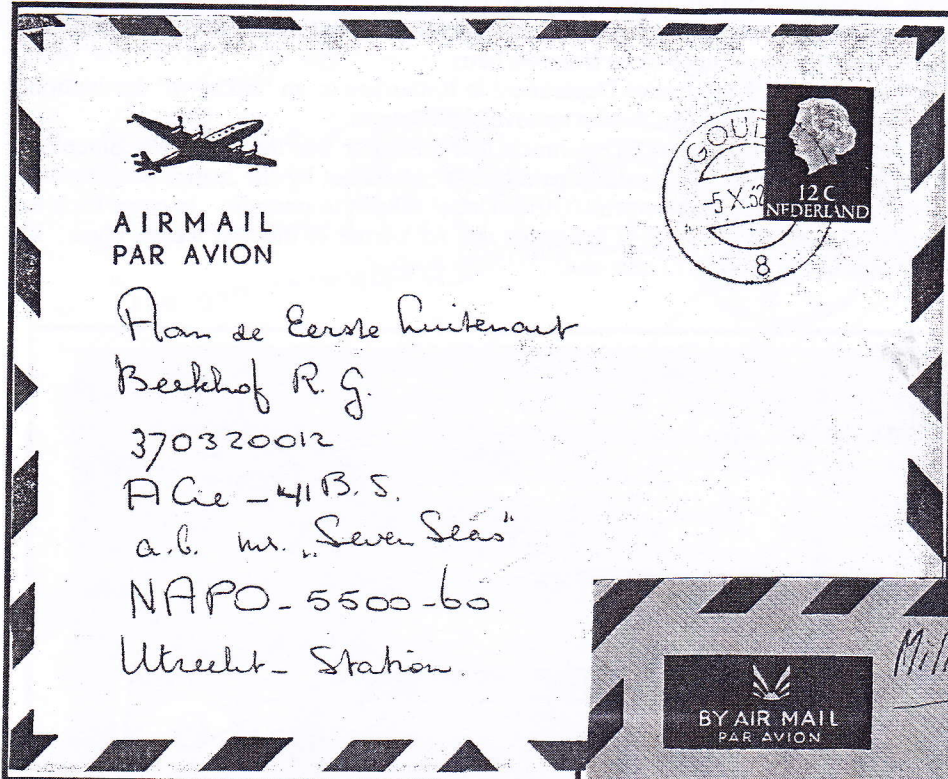 AIRMAIL
PAR AVION
GOUD
-5 X.62
8
12 C
NEDERLAND
Aan de Eerste Luitenant
Beekhof R. G.
370320012
A Cie - 41 B.S.
a.b. ms. „Seven Seas"
NAPO - 5500 - 60
Utrecht - Station.
Mil
BY AIR MAIL
PAR AVION